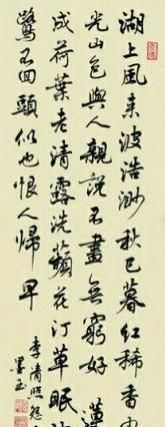 湖上風来波浩渺秋已暮紅稀香
光山色與人親說不盡無窮好蓮
成荷葉老清露洗蘋花汀草眠
鷺不回頭似也恨人歸早
李清照怨
墨玉